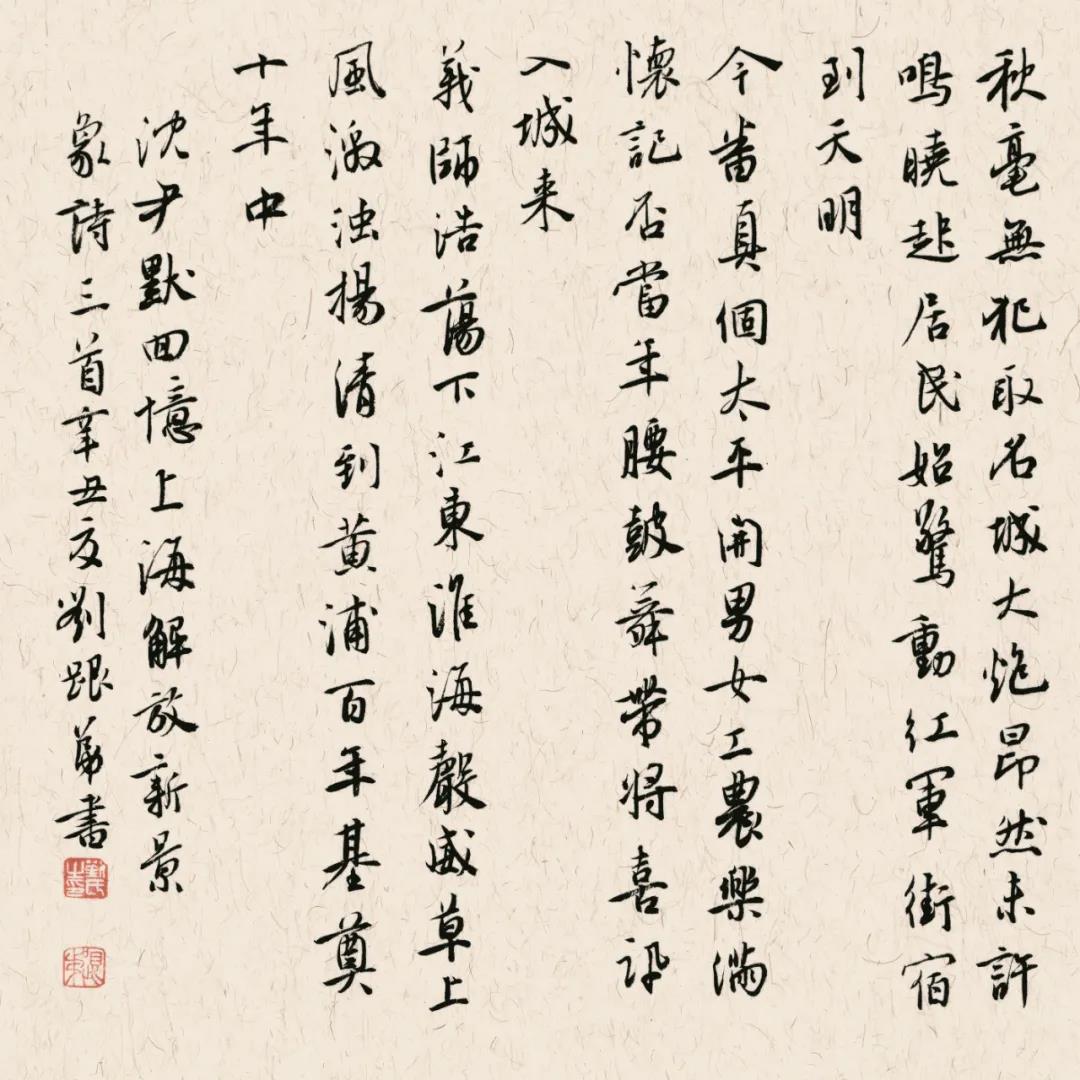 秋毫無犯取名城大炮昂然未許
鳴曉起居民始驚動紅軍街宿
到天明
今番真個太平開男女工農樂滿
懷記否當年腰鼓舞帶將喜訊
入城来
義師浩蕩下江東淮海聲威草上
風激濁揚清到黄浦百年基奠
十年中
沈尹默回憶上海解放新景
象詩三首辛丑夏劉跟第書